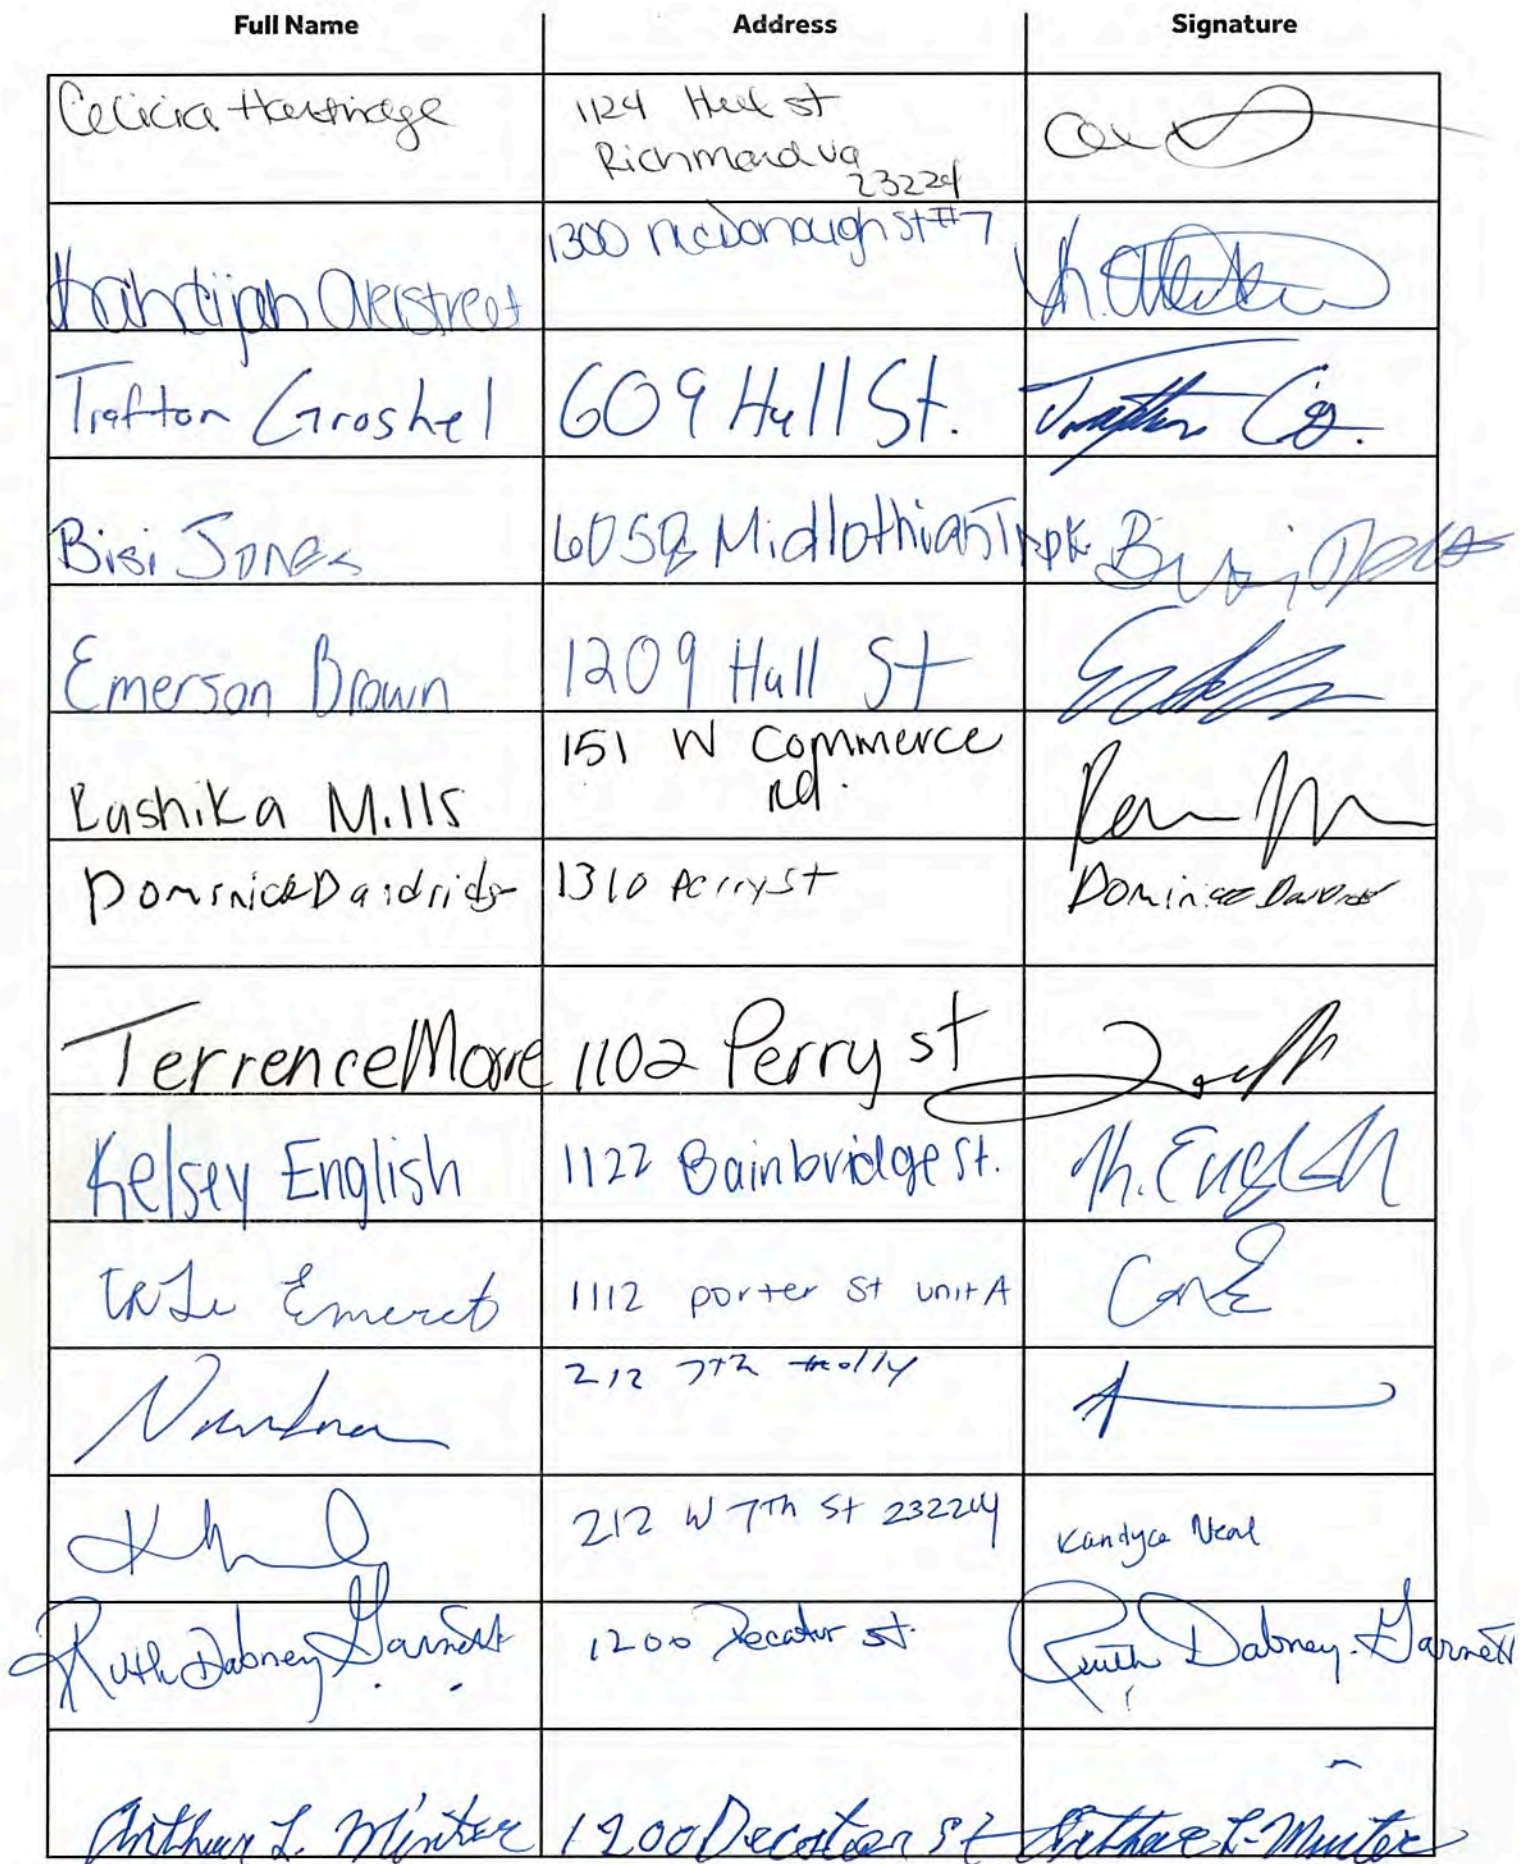 Full Name Address Signature
1124 Hull st
Richmond va
23224
1300 mcdonough st #7
Overstreet
Trafton Groshel 609 Hull St.
Bisi Jones Midlothian Tnpk Bisi Jones
Emerson Brown 1209 Hull St
151 W Commerce
Rd.
Lashika Mills
Dominick Dandridge 1310 Perry St Dominick
Terrence Moore 1102 Perry st
Kelsey English 1122 Bainbridge St. K. English
Emeret 1112 porter St unit A
212 7th
212 W 7Th St 23224 Kandyce Neal
Ruth Dabney Garnett 1200 Decatur st. Ruth Dabney-Garnett
Arthur L. Minter 1200 Decatur St Arthur L. Minter